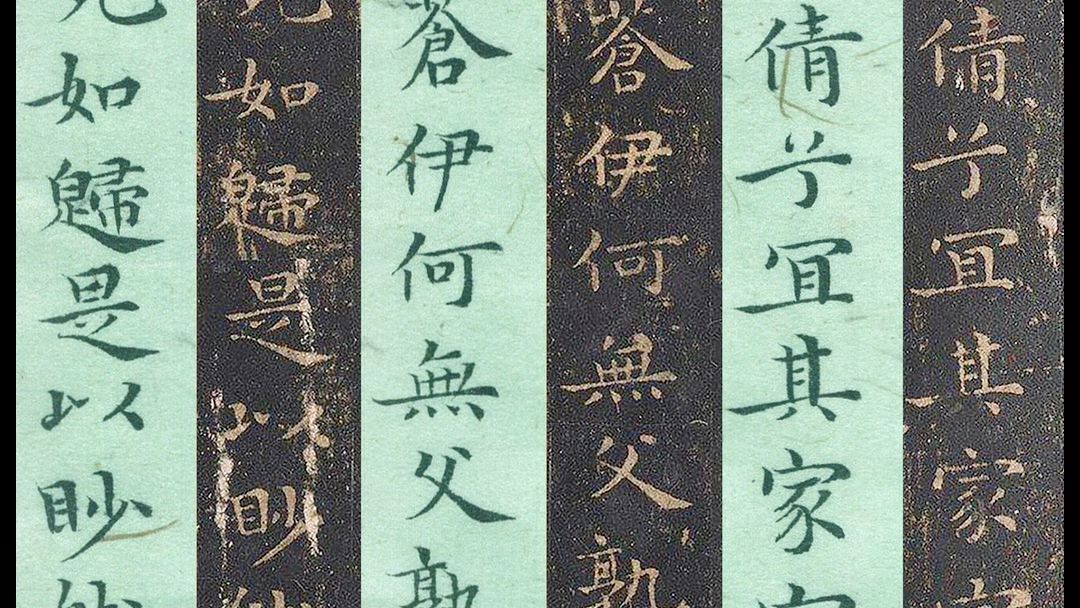 倩兮冝其家
倩兮冝其家
蒼伊何無父孰
蒼伊何無父孰
如歸是以眇
如歸是以眇